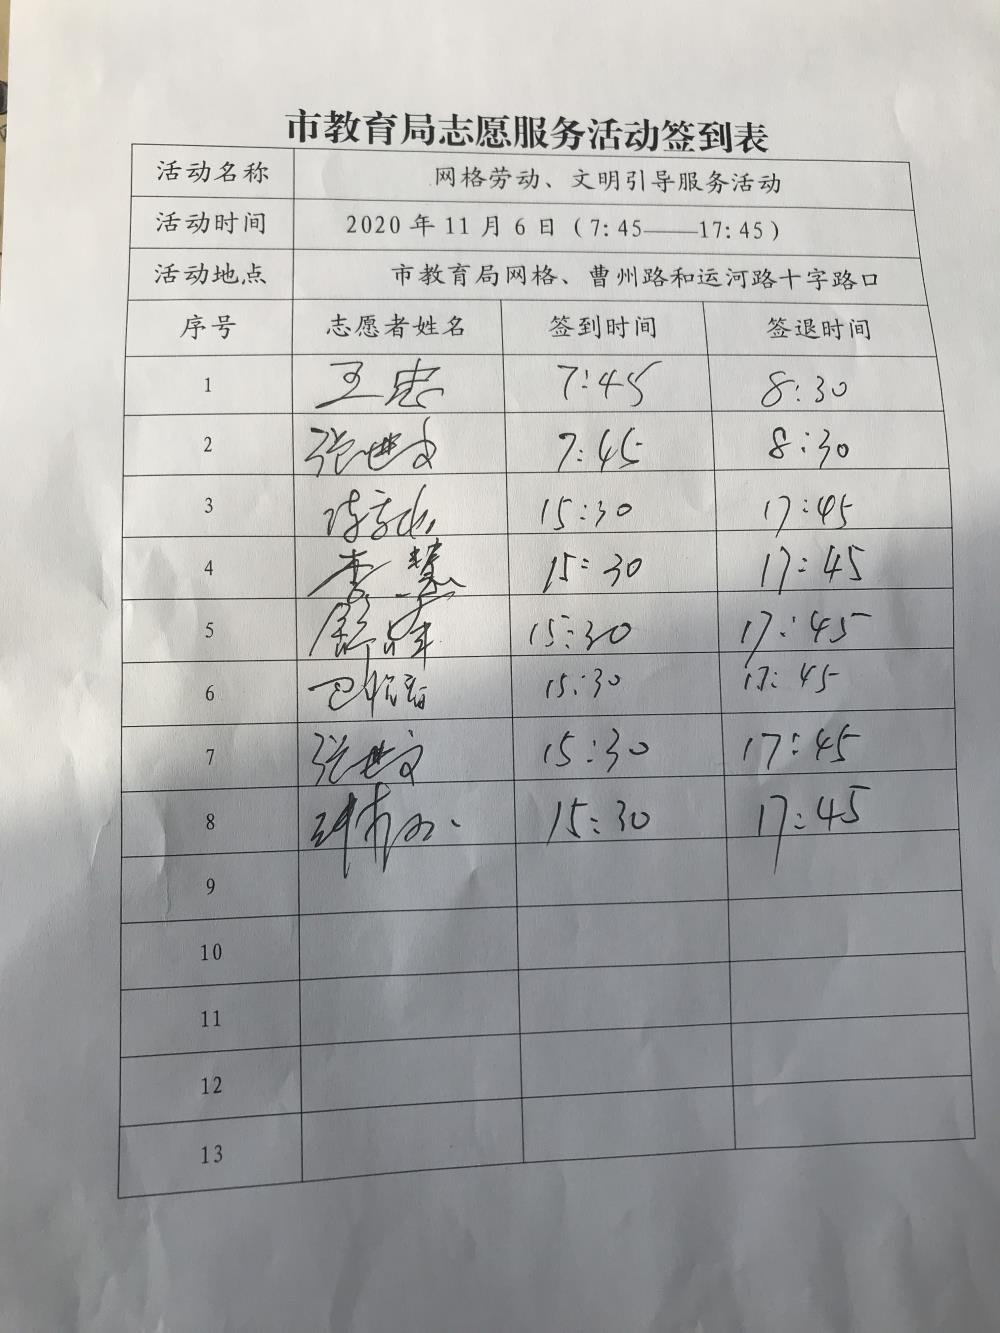 市教育局志愿服务活动签到表
活动名称 网格劳动、文明引导服务活动
活动时间 2020年11月6日（7:45——17:45）
活动地点 市教育局网格、曹州路和运河路十字路口
序号 志愿者姓名 签到时间 签退时间
1 王忠 7:45 8:30
2 张世文 7:45 8:30
3 15:30 17:45
4 李慧 15:30 17:45
5 15:30 17:45
6 15:30 17:45
7 张世文 15:30 17:45
8 15:30 17:45
9
10
11
12
13